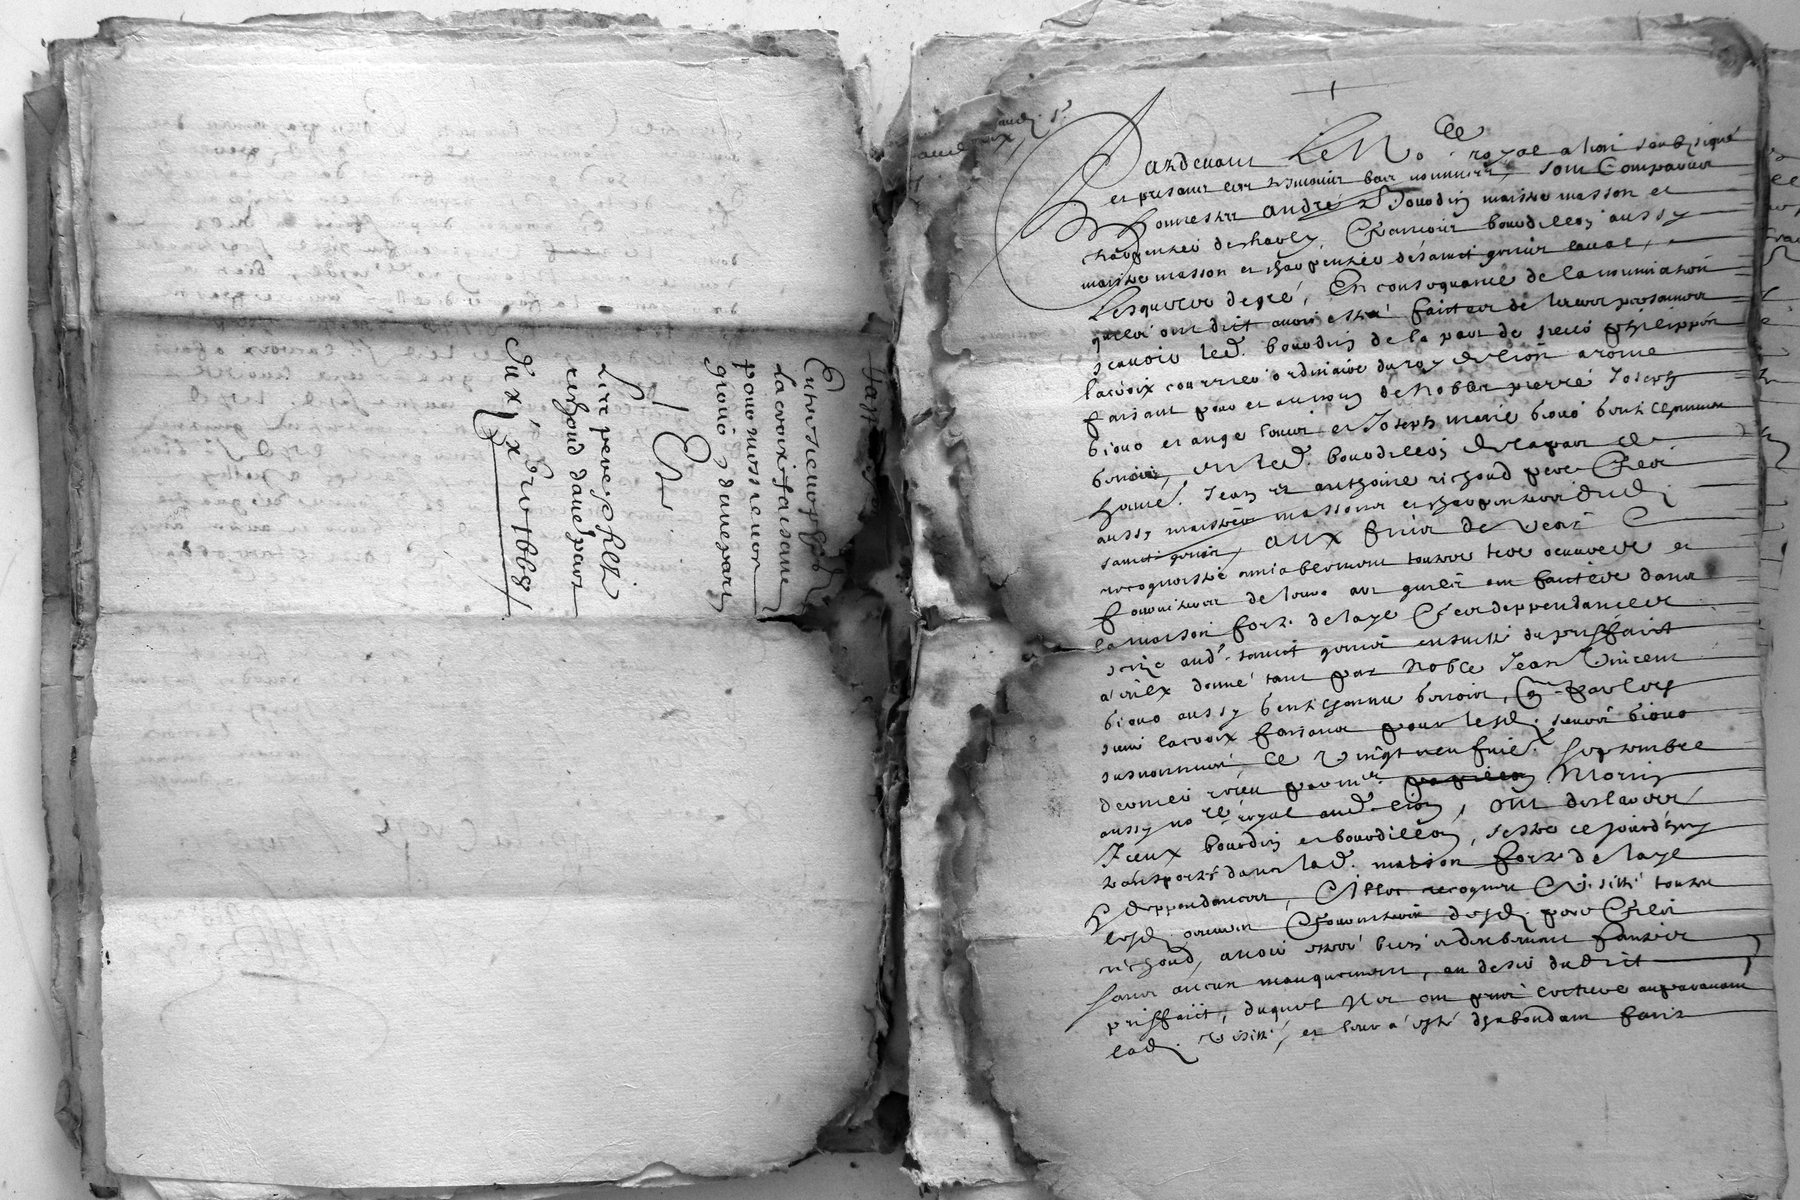 Entre sieur phle
lacroix faisant
pour messieurs
giouo d'une part
Et
Les peres & filz
richoud d'aue part
Du x' x bre 1668
Pardeuant Le No re royal a lion soubsigné
et presents les tesmoins bas nommés, sont Comparus
honnestes andré bourdin maistre masson et
charpentier de charly, & Francois bourdillon aussy
maistre masson et charpentier de sainct genis laual,
Lesquels de gré, En consequance de la nomination
quilz ont dit auoir esté faicte de leurs personnes
scauoir led. bourdin de la part de sieur philippe
lacroix courrier ordinaire du roy de lion a rome
faisant pour et au nom de nobles pierre Joseph
giouo et ange louis et Joseph marie giouo gentilhommes
genois, et led. bourdillon de la part de
honnes. Jean et anthoine richoud pere & filz
aussy maistres massons et charpentiers dud.
sainct genis, aux fins de venir
recognoistre amiablement toutes les oeuures et
fournitures de leur art quilz ont faictes dans
la maison forte de laye & ses deppendances
size aud. sainct genis ensuitte du prisfaict
a eulx donné tant par Noble Jean Vincent
giouo aussy gentilhomme genois, que par led.
sieur lacroix faisant pour lesd. sieurs giouo
susnommés, le vingt neufuie. septembre
dernier receu par me. Morin
aussy no re royal aud. lion, ont desclairé
Iceux bourdin et bourdillon, s'estre ce jourdhuy
transportés dans lad. maison forte de laye
& deppendances, & Illec recogneu & visitté toutes
lesd. oeuures & fournitures desd. pere & filz
richoud, auoir estés bien & deubement faictes
sans aucun manquement, au desir dudit
prisfaict, duquel Ilz ont prins lecture auparauant
lad. visitte, et leur a esté dhabondant faict